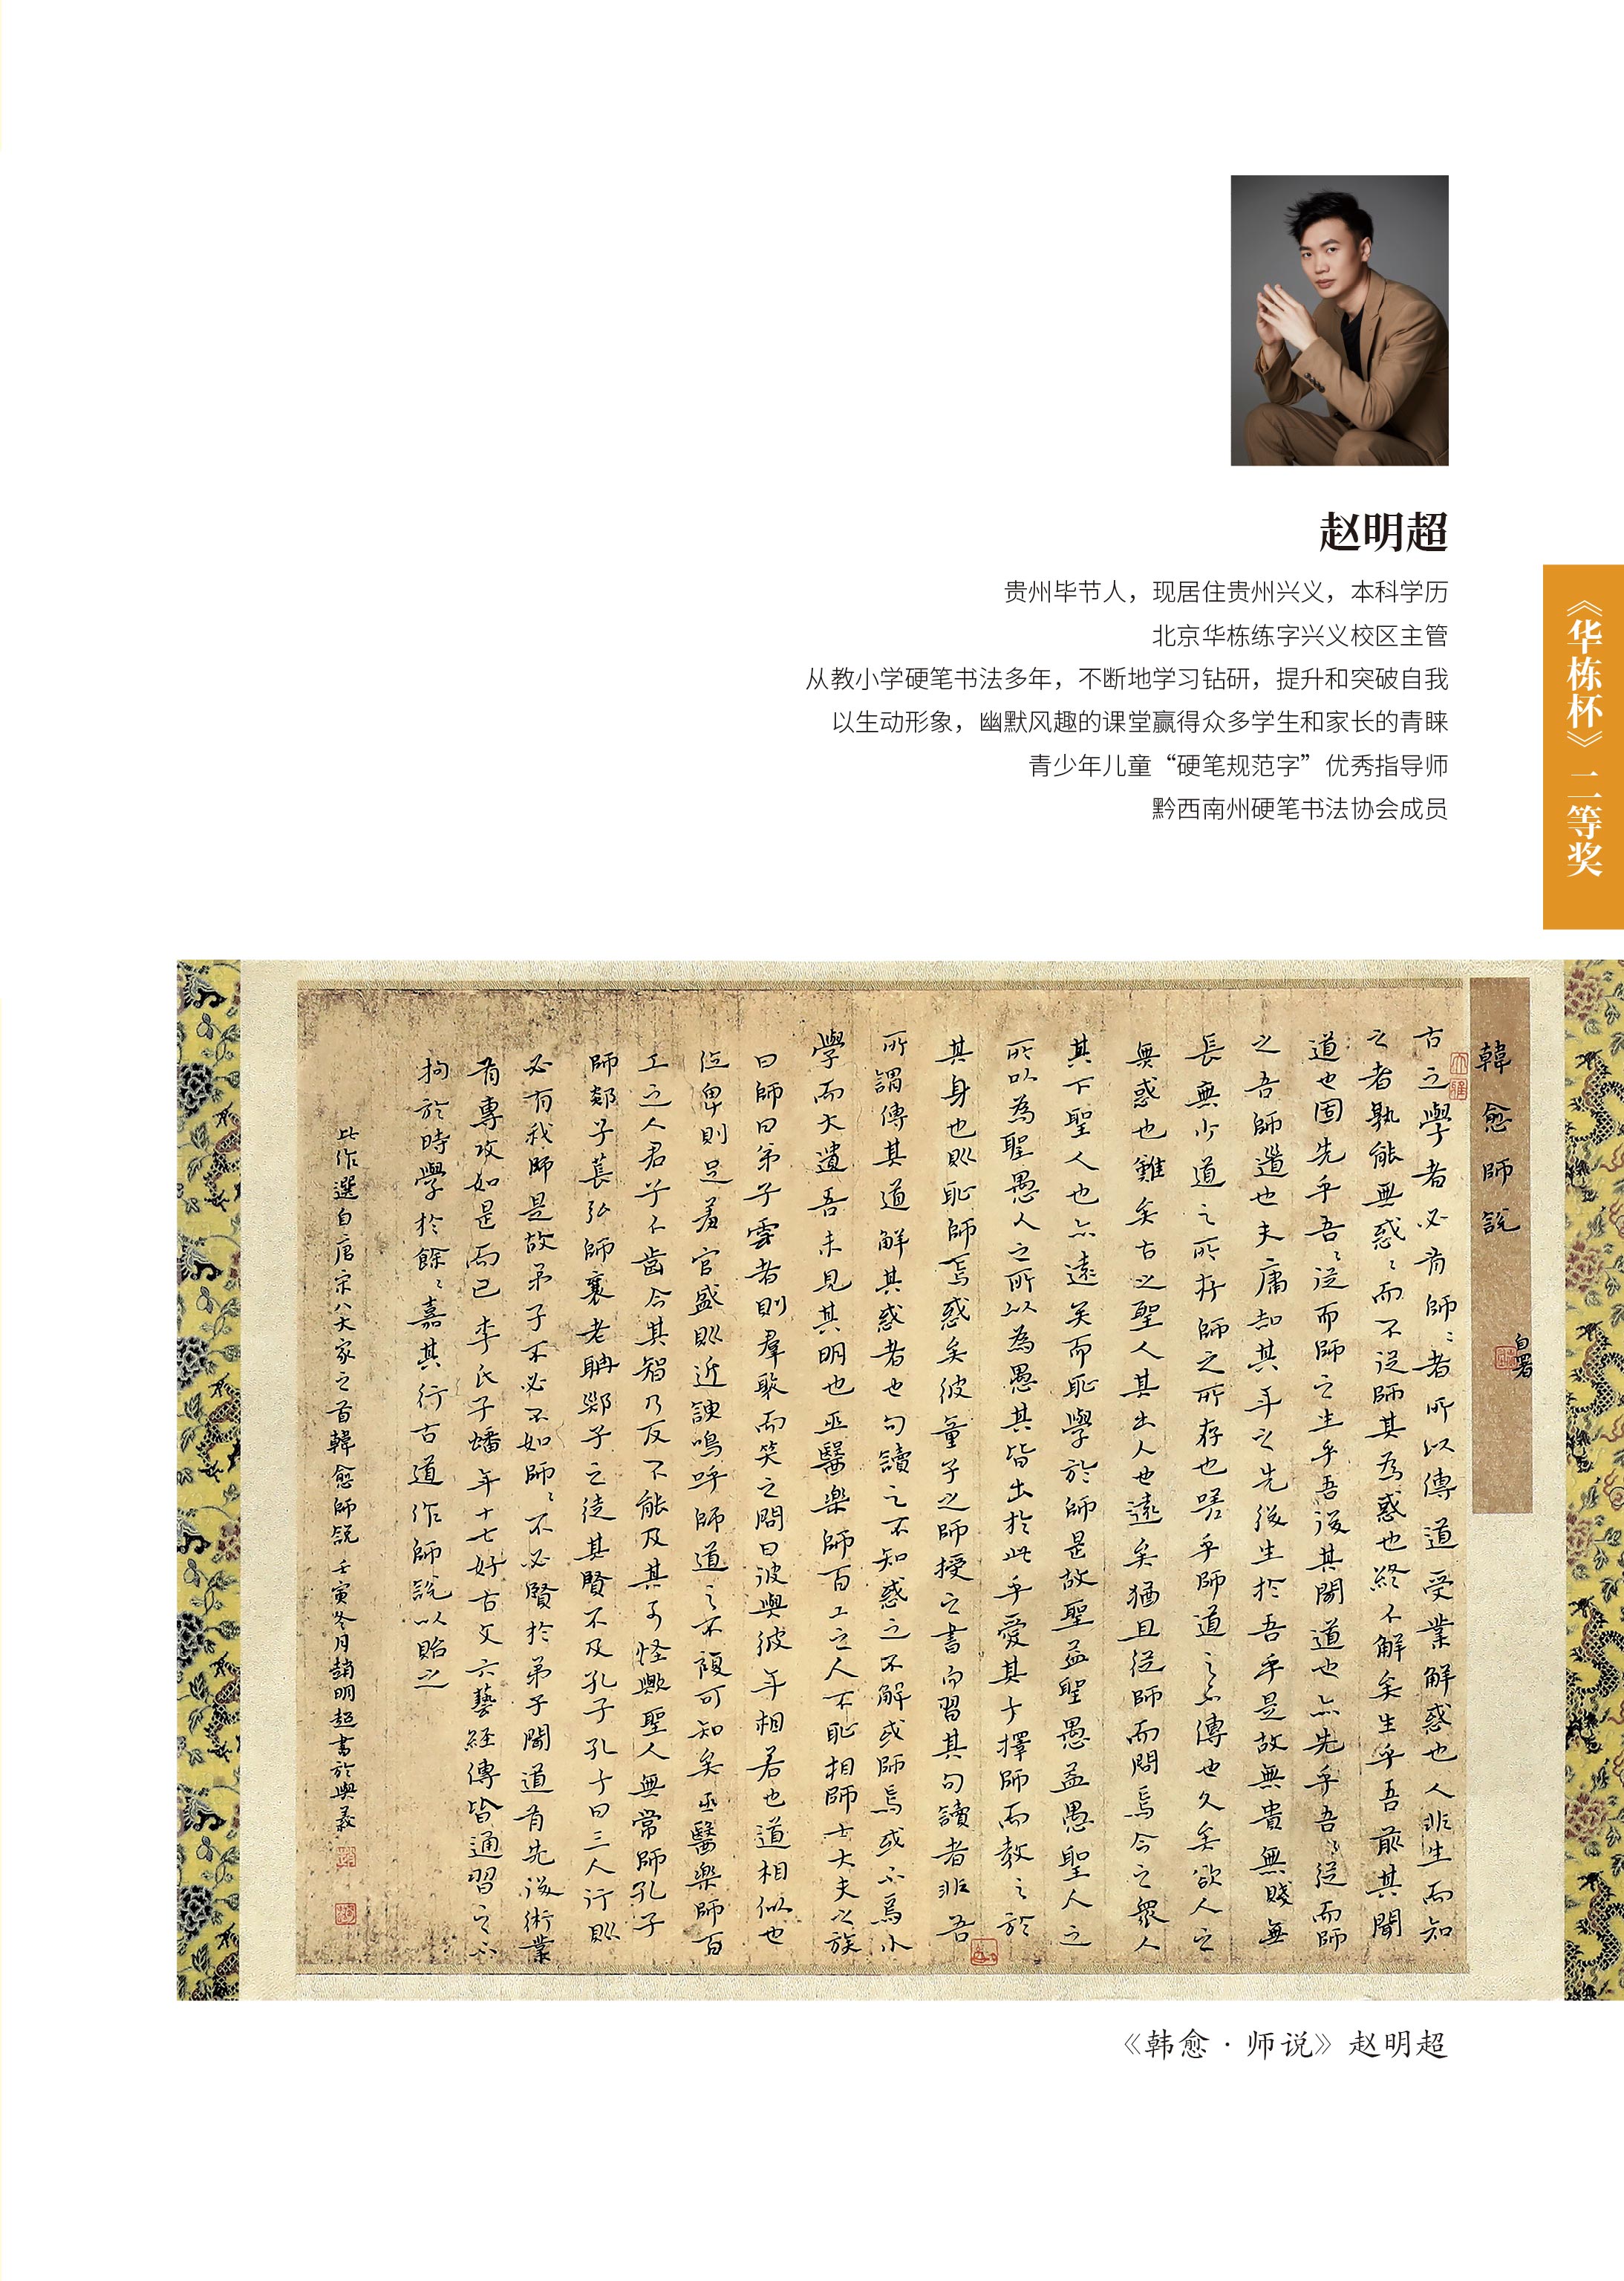 赵明超
贵州毕节人，现居住贵州兴义，本科学历
北京华栋练字兴义校区主管
从教小学硬笔书法多年，不断地学习钻研，提升和突破自我
以生动形象，幽默风趣的课堂赢得众多学生和家长的青睐
青少年儿童“硬笔规范字”优秀指导师
黔西南州硬笔书法协会成员
《华栋杯》二等奖
韓愈師說
自署
古之學者必有師〻者所以傳道受業解惑也人非生而知
之者孰能無惑〻而不從師其為惑也終不解矣生乎吾前其聞
道也固先乎吾〻從而師之生乎吾後其聞道也亦先乎吾〻從而師
之吾師道也夫庸知其年之先後生於吾乎是故無貴無賤無
長無少道之所存師之所存也嗟乎師道之不傳也久矣欲人之
無惑也難矣古之聖人其出人也遠矣猶且從師而問焉今之眾人
其下聖人也亦遠矣而恥學於師是故聖益聖愚益愚聖人之
所以為聖愚人之所以為愚其皆出於此乎愛其子擇師而教之於
其身也則恥師焉惑矣彼童子之師授之書而習其句讀者非吾
所謂傳其道解其惑者也句讀之不知惑之不解或師焉或不焉小
學而大遺吾未見其明也巫醫樂師百工之人不恥相師士大夫之族
曰師曰弟子雲者則羣聚而笑之問曰彼與彼年相若也道相似也
位卑則足羞官盛則近諛嗚呼師道之不複可知矣巫醫樂師百
工之人君子不齒今其智乃反不能及其可怪歟聖人無常師孔子
師郯子萇弘師襄老聃郯子之徒其賢不及孔子孔子曰三人行則
必有我師是故弟子不必不如師〻不必賢於弟子聞道有先後術業
有專攻如是而已李氏子蟠年十七好古文六藝經傳皆通習之不
拘於時學於餘〻嘉其行古道作師說以貽之
此作選自唐宋八大家之首韓愈師說壬寅冬月趙明超書於興義
《韩愈·师说》赵明超